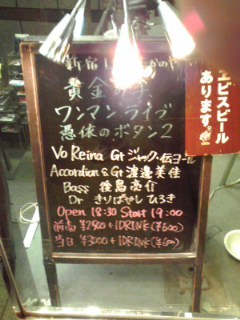 新宿
黄金の
ワンマンライブ
憑依のボタン2
Vo Reina Gt ジャック・伝ヨール
Accordion & Gt 渡邊美佳
Bass 後島亮介
Dr きりばやしひろき
Open 18:30 Start 19:00
前売 ¥2500+1DRINK(¥600)
当日 ¥3000+1DRINK(¥600)
ヱビスビール
あります。